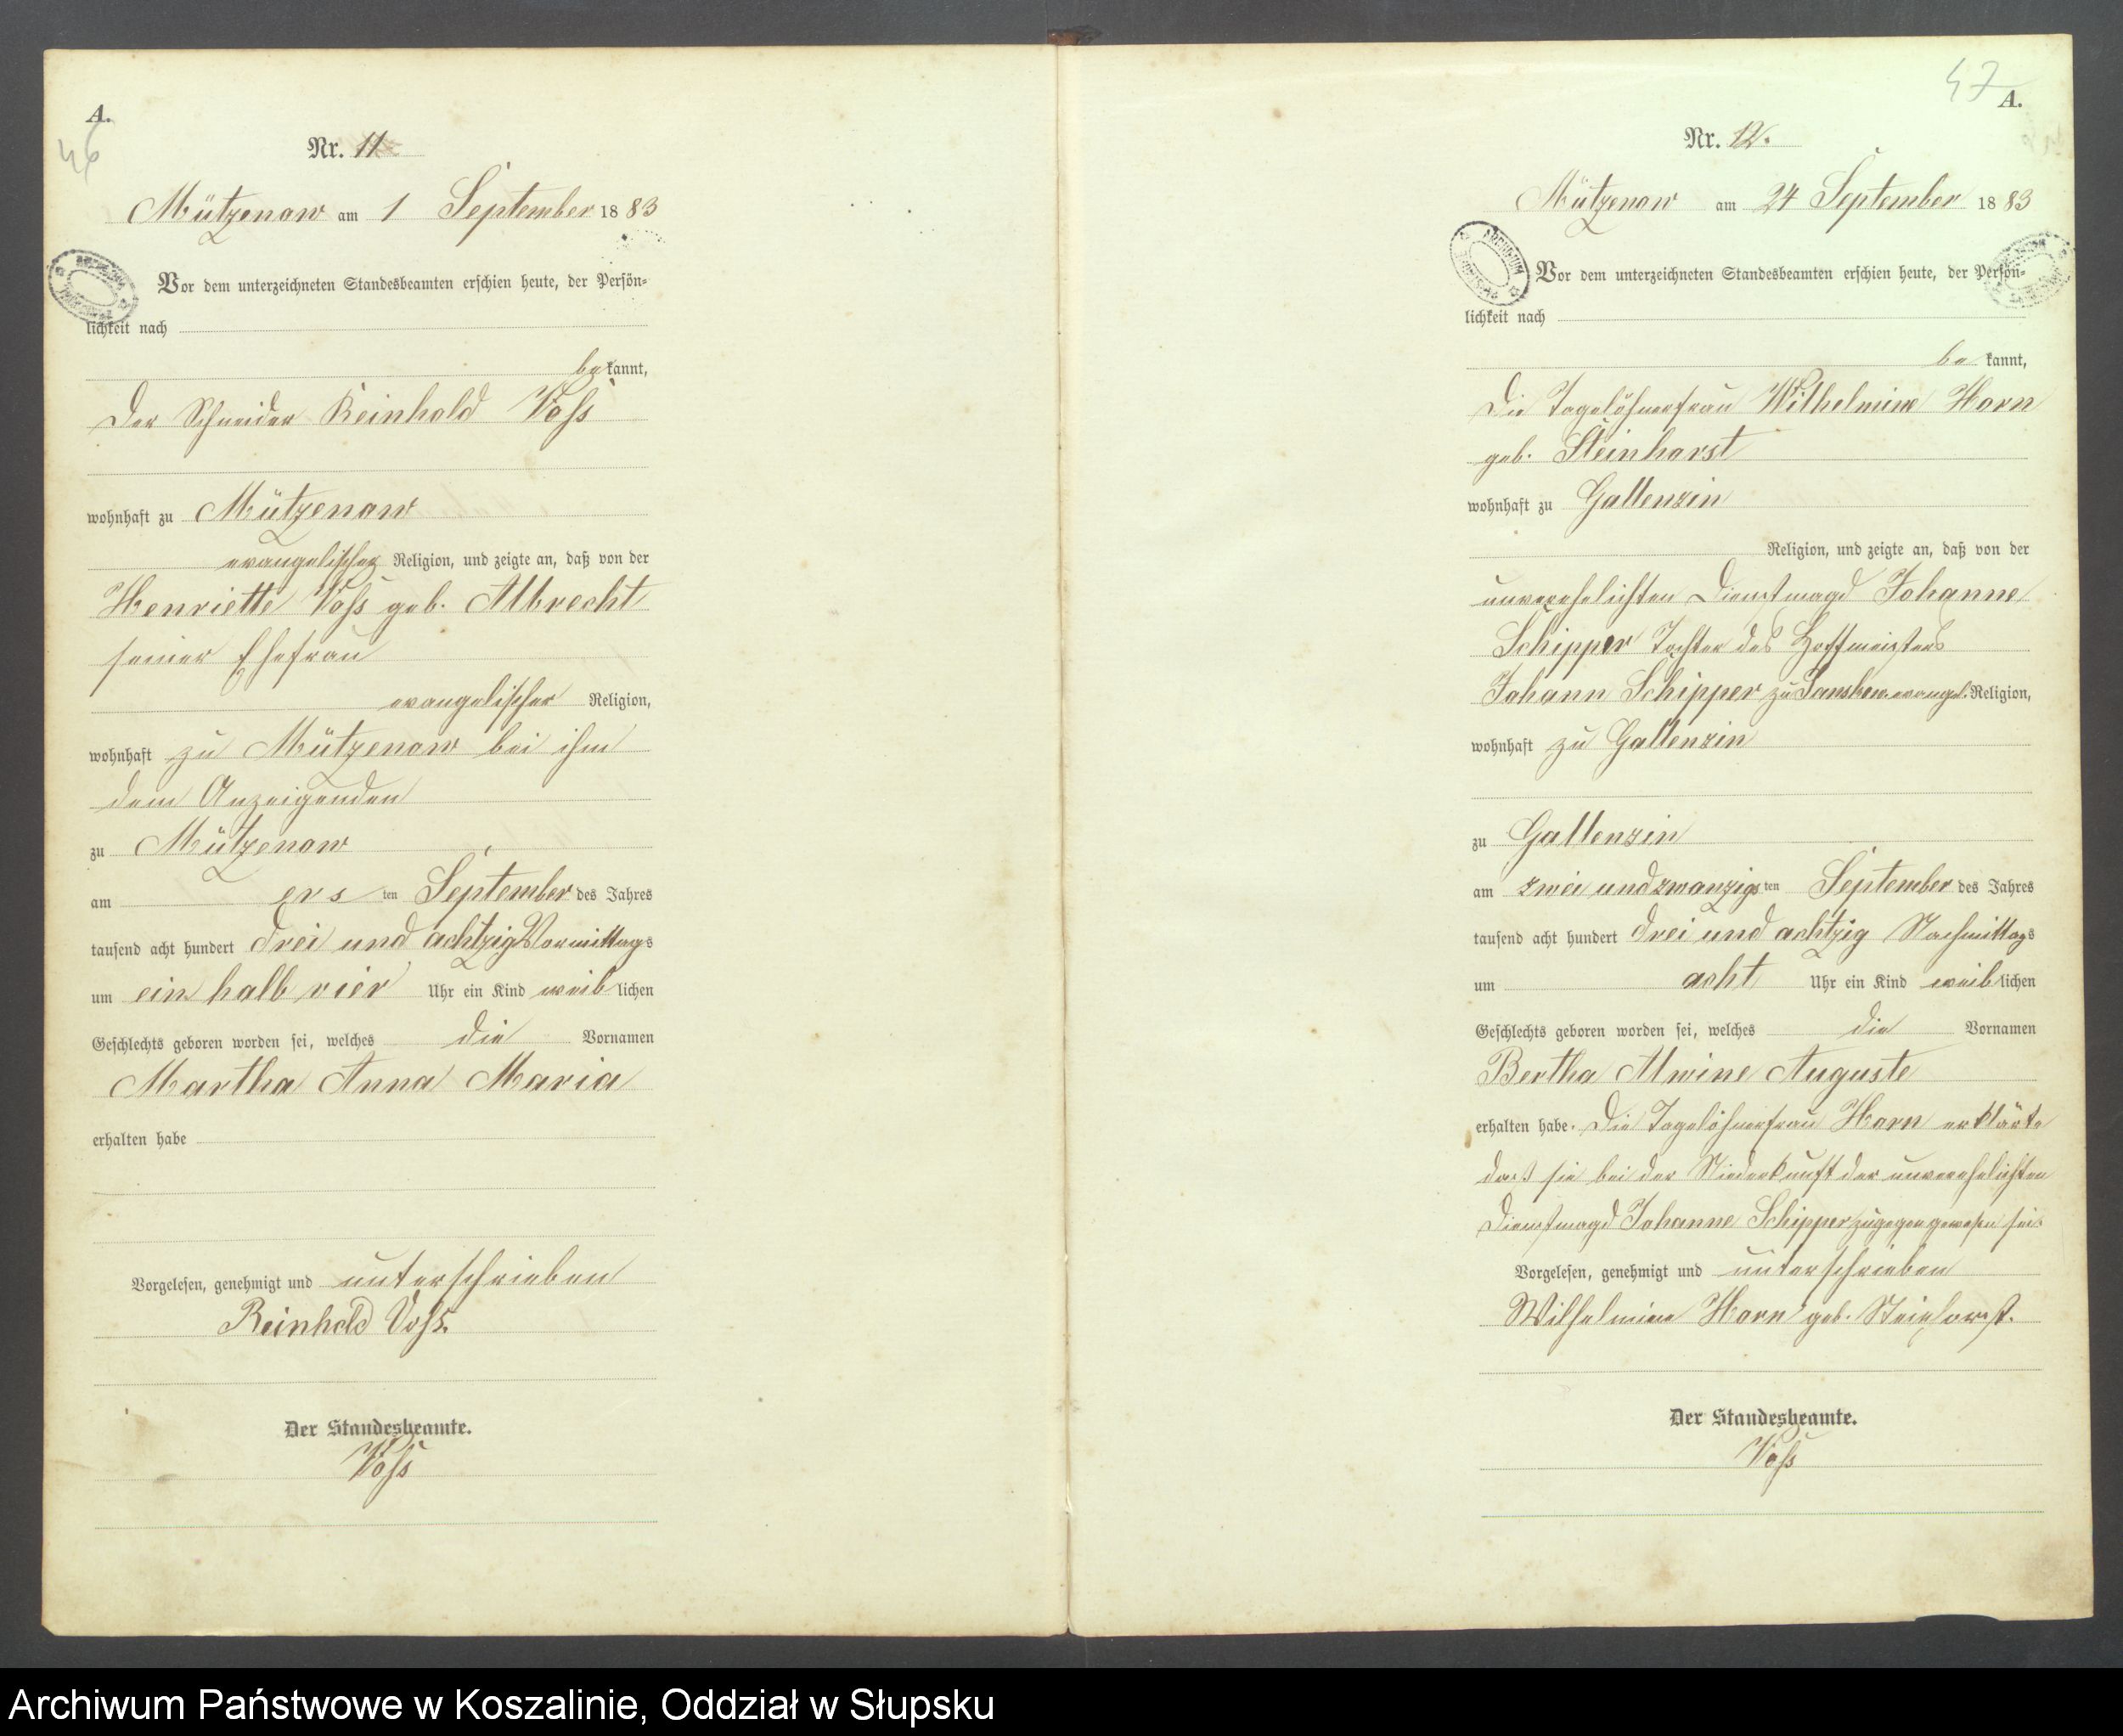 A.
46
Nr. 11
Mützenow am 1 September 1883
Vor dem unterzeichneten Standesbeamten erschien heute, der Persön-
lichkeit nach
bekannt,
der Schneider Reinhold Voß
wohnhaft zu Mützenow
evangelischer Religion, und zeigte an, daß von der
Henriette Voß geb. Albrecht
seiner Ehefrau
evangelischer Religion,
wohnhaft zu Mützenow bei ihm
dem Anzeigenden
zu Mützenow
am ersten September des Jahres
tausend acht hundert drei und achtzig Vormittags
um ein halb vier Uhr ein Kind weiblichen
Geschlechts geboren worden sei, welches die Vornamen
Martha Anna Maria
erhalten habe
Vorgelesen, genehmigt und unterschrieben
Reinhold Voß.
Der Standesbeamte.
Voß
47
A.
Nr. 12.
Mützenow am 24 September 1883
ARCHIWUM
Vor dem unterzeichneten Standesbeamten erschien heute, der Persön-
lichkeit nach
bekannt,
die Tagelöhnerfrau Wilhelmine Horn
geb. Steinhorst
wohnhaft zu Gallenzin
Religion, und zeigte an, daß von der
unverehelichten Dienstmagd Johanne
Schipper Tochter des Hoffmeisters
Johann Schipper zu evangel. Religion,
wohnhaft zu Gallenzin
zu Gallenzin
am zwei und zwanzigsten September des Jahres
tausend acht hundert drei und achtzig Nachmittags
um acht Uhr ein Kind weiblichen
Geschlechts geboren worden sei, welches die Vornamen
Bertha Alwine Auguste
erhalten habe. Die Tagelöhnerfrau Horn erklärte
daß sie bei der Niederkunft der unverehelichten
Dienstmagd Johanne Schipper zugegen gewesen sei.
Vorgelesen, genehmigt und unterschrieben
Wilhelmine Horn geb. Steinhorst.
Der Standesbeamte.
Voß
Archiwum Państwowe w Koszalinie, Oddział w Słupsku